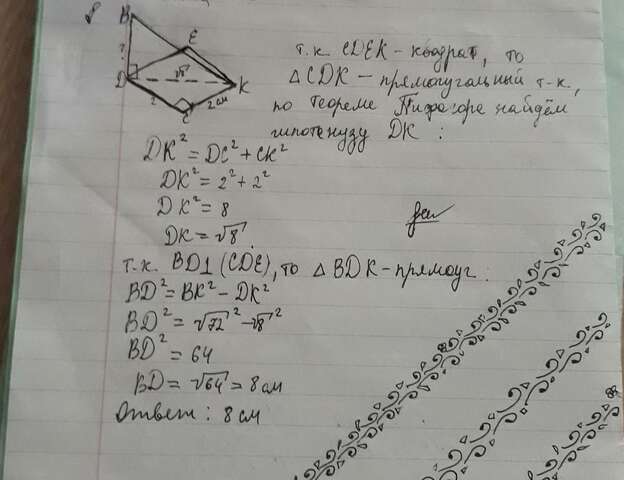 8
B
E
?
√8
D
K
2
2 см
C
т.к. CDEK - квадрат, то
△CDK - прямоугольный т-к,
по теореме Пифагора найдём
гипотенузу DK :
DK² = DC² + CK²
DK² = 2² + 2²
DK² = 8
DK = √8.
т.к. BD⊥(CDE), то △BDK - прямоуг:
BD² = BK² - DK²
BD² = √72² - √8²
BD² = 64
BD = √64 = 8 см
Ответ: 8 см